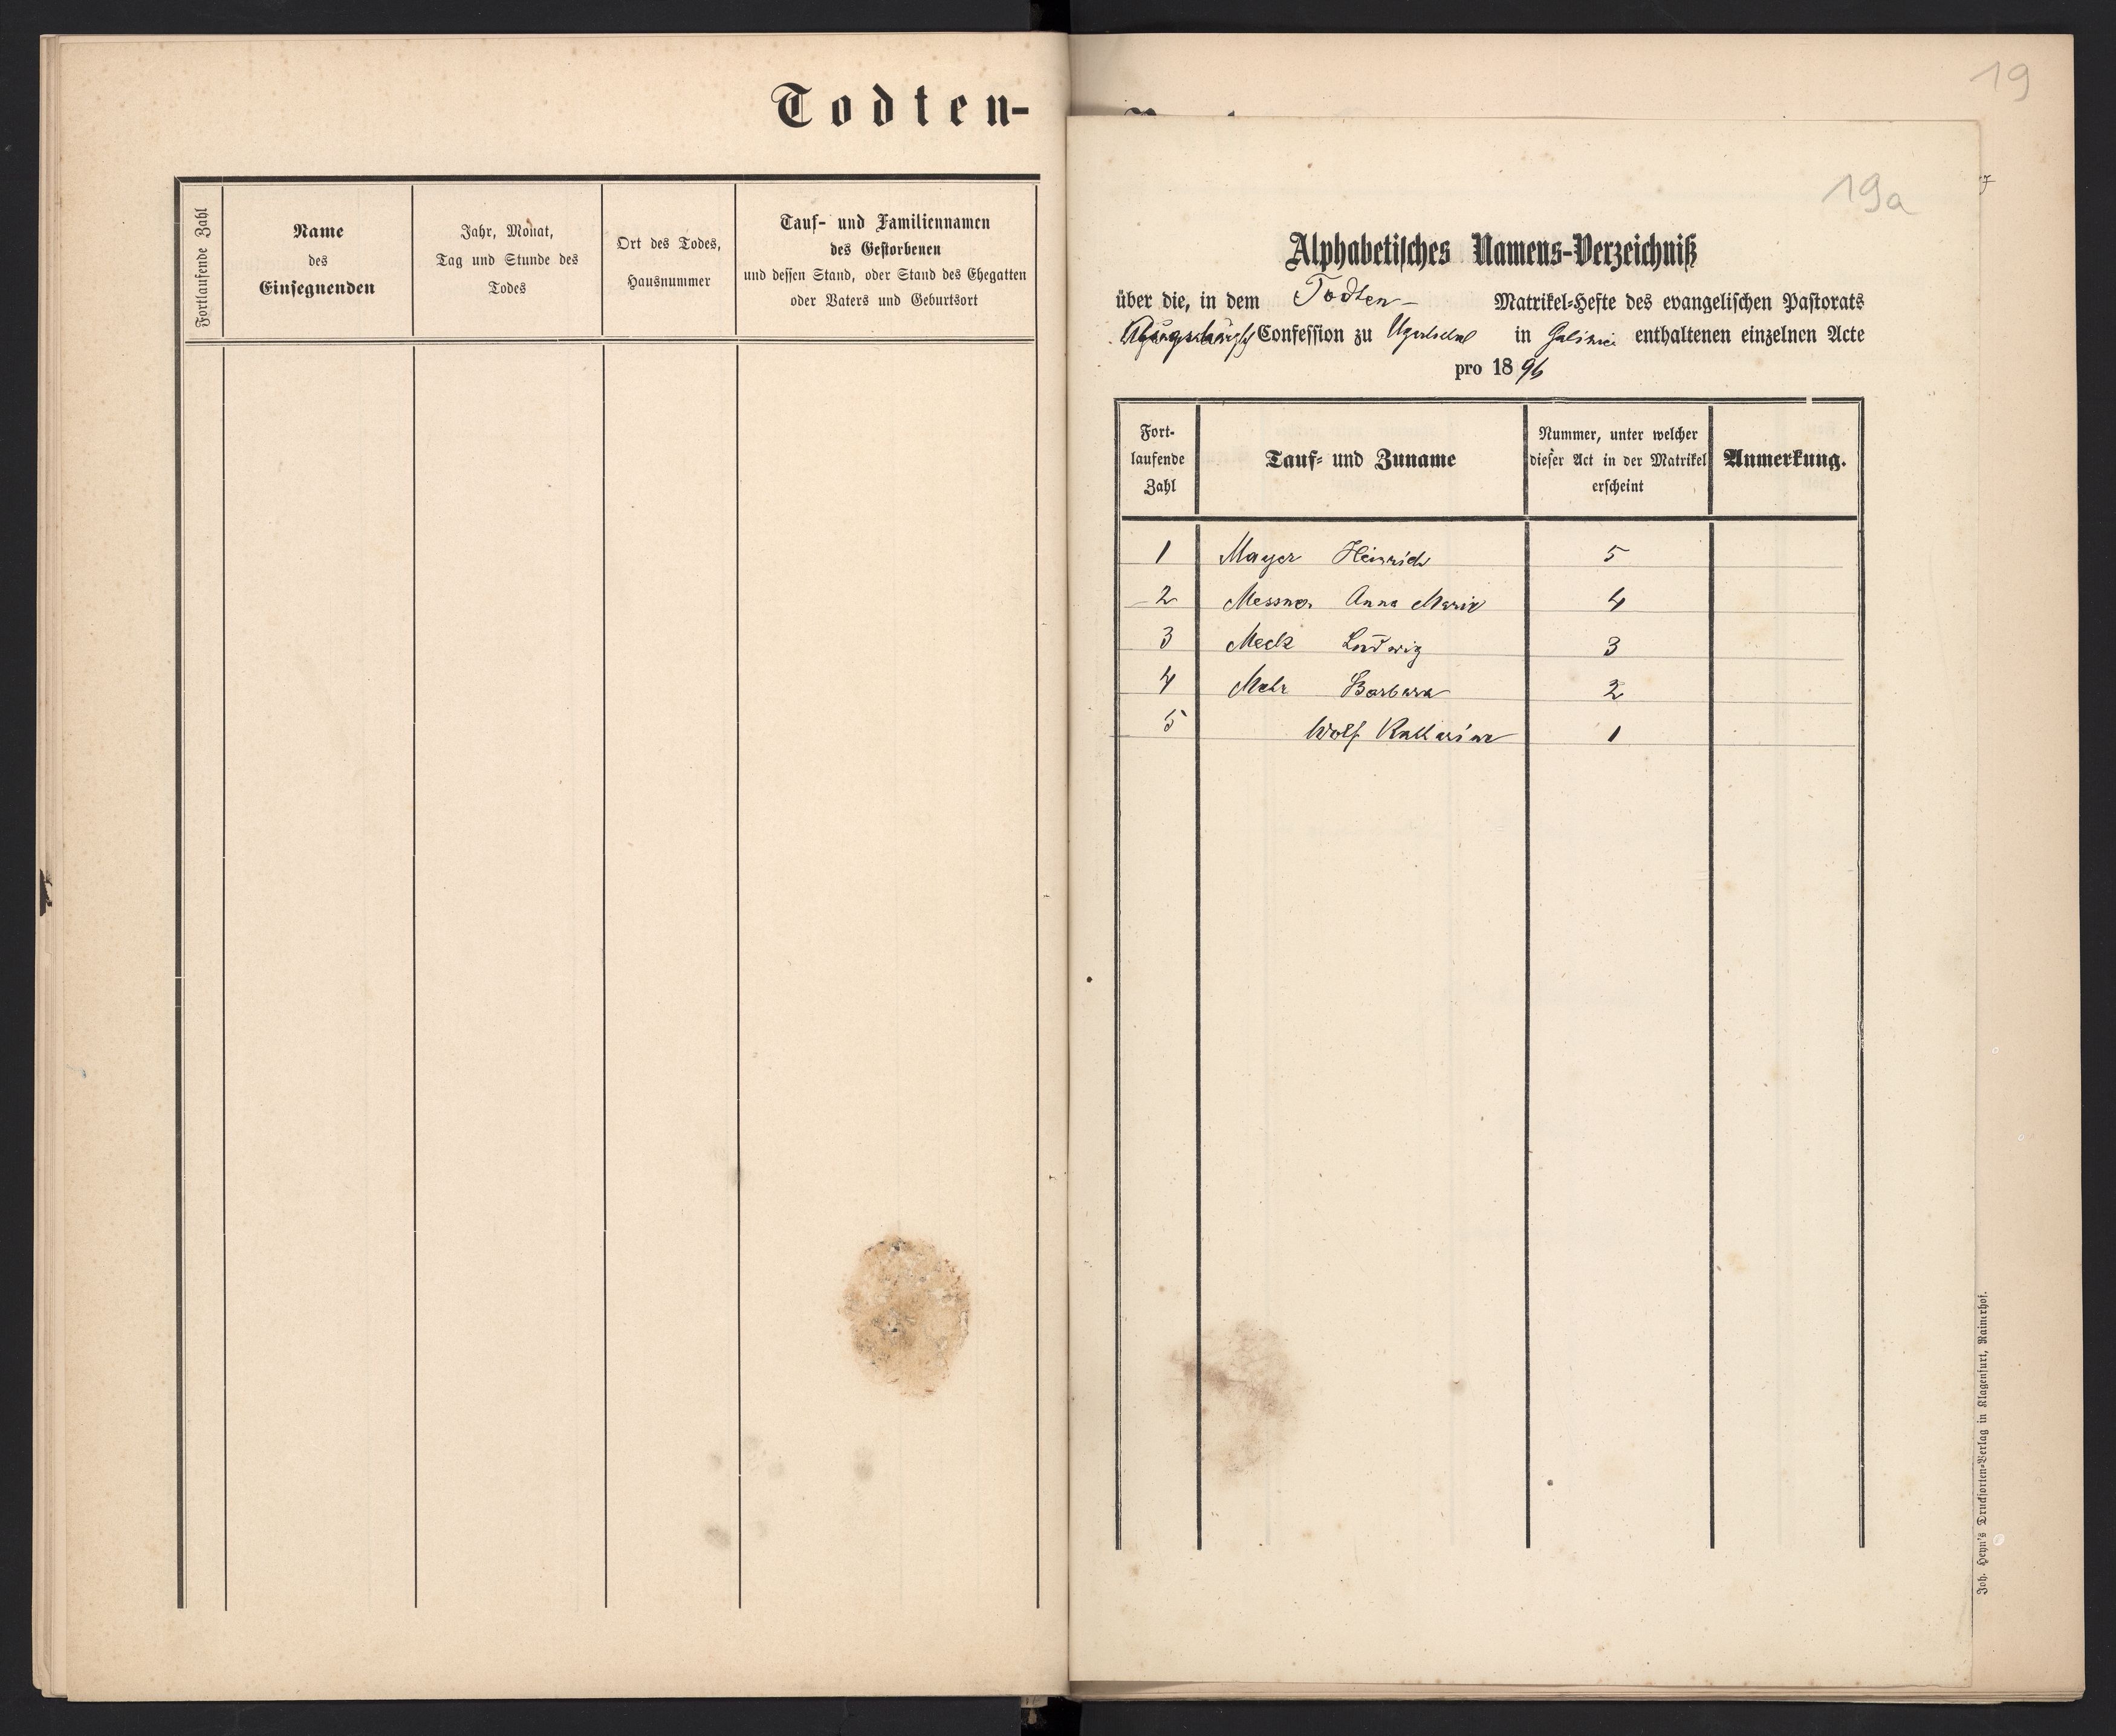 Todten-
Fortlaufende Zahl
Name
des
Einsegnenden
Jahr, Monat,
Tag und Stunde des
Todes
Ort des Todes,
Hausnummer
Tauf- und Familiennamen
des Gestorbenen
und dessen Stand, oder Stand des Ehegatten
oder Vaters und Geburtsort
19
19a
Alphabetisches Namens-Verzeichniß
über die, in dem Todten- Matrikel-Hefte des evangelischen Pastorats
Confession zu Ugartsthal in enthaltenen einzelnen Acte
pro 1896
Fort-
laufende
Zahl
Tauf- und Zuname
Nummer, unter welcher
dieser Act in der Matrikel
erscheint
Anmerkung.
1 Mayer Heinrich 5
2 Messner Anna Maria 4
3 Meck Ludwig 3
4 Barbara 2
5 Wolf Katharina 1
Joh. Heyn's Drucksorten-Verlag in Klagenfurt, Rainerhof.